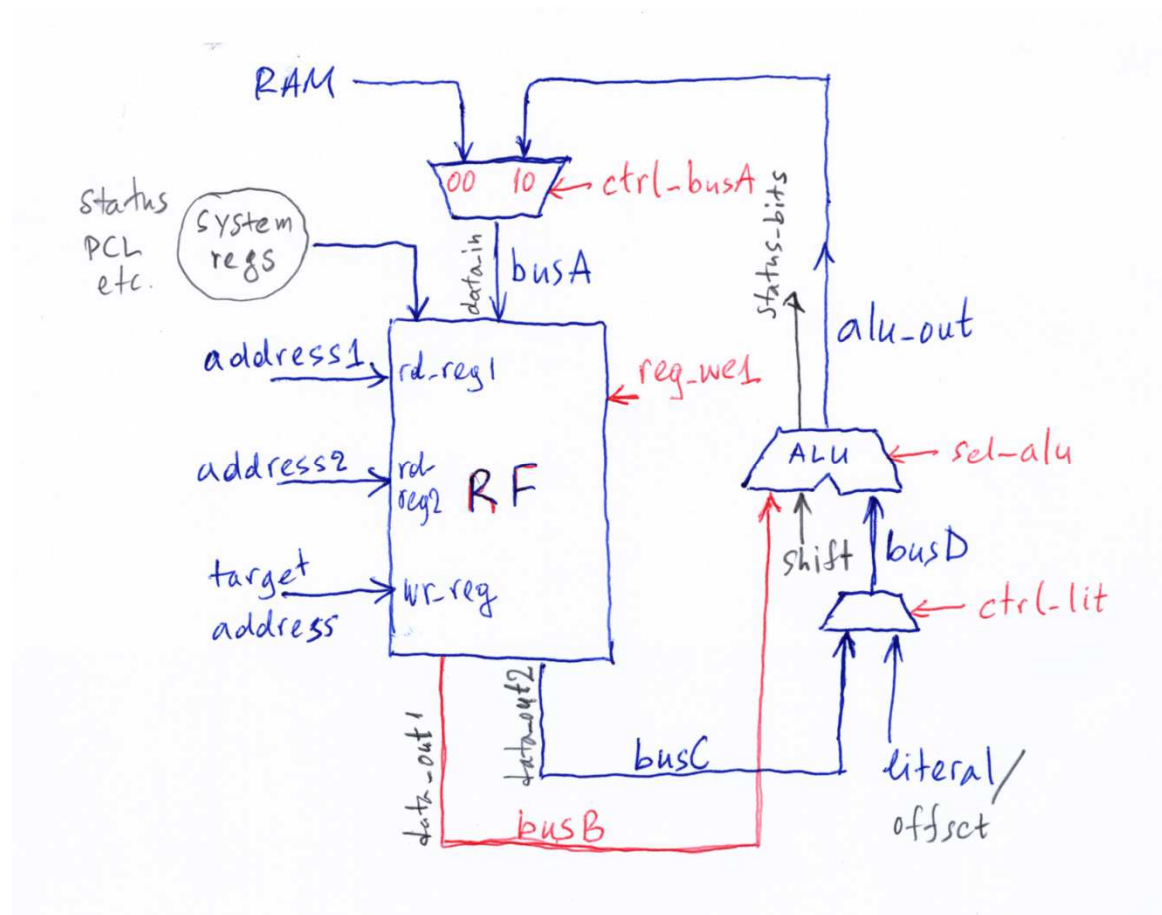 RAM
00 10
ctrl-busA
Status
PCL
etc.
system
regs
data_in
busA
status-bits
alu_out
address1
rd_reg1
reg_we1
address2
rd-
reg2
RF
ALU
sel-alu
shift
busD
target
address
wr_reg
ctrl-lit
data_out1
data_out2
busC
literal/
offset
busB